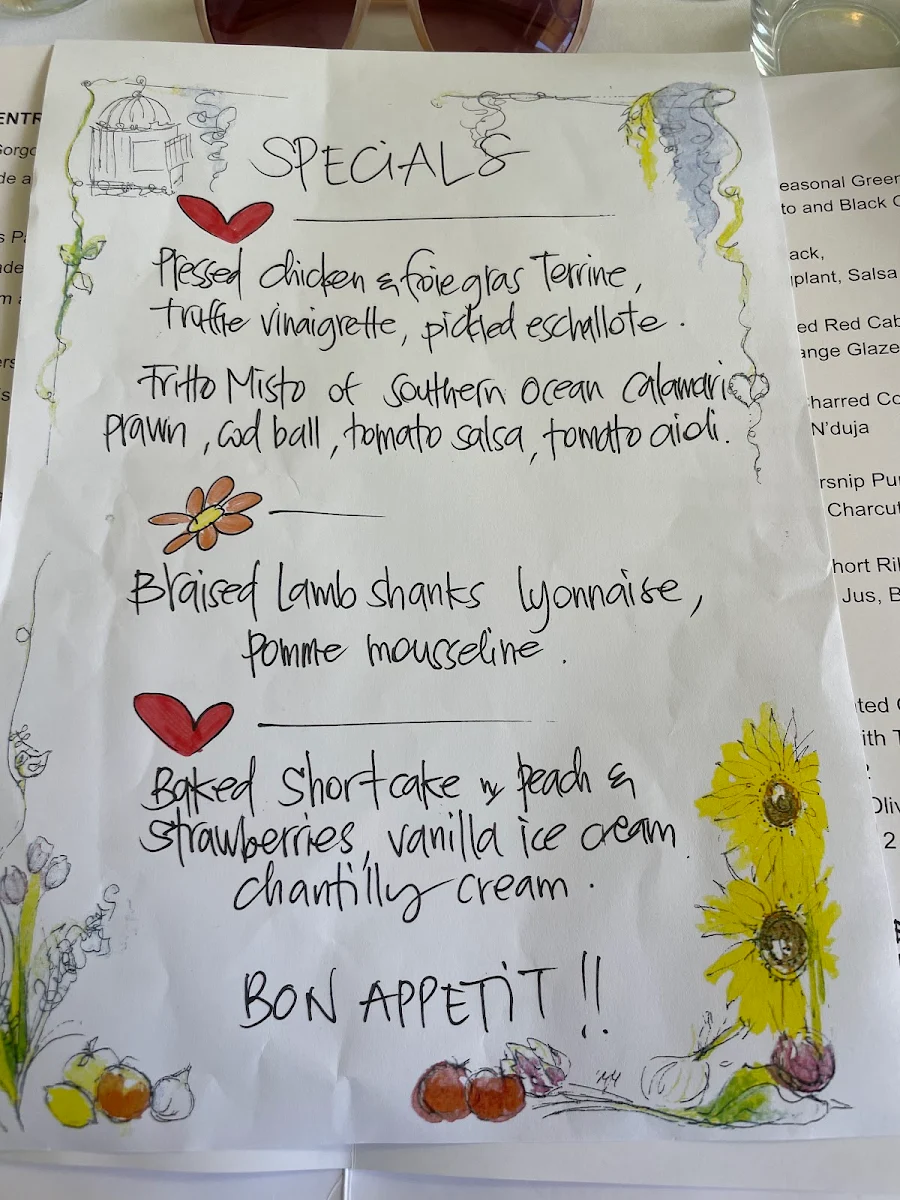 SPECIALS
Pressed chicken & foie gras Terrine,
truffle vinaigrette, pickled eschallote.
Fritto Misto of Southern Ocean Calamari
prawn, cod ball, tomato salsa, tomato aioli.
Braised Lamb shanks lyonnaise,
pomme mousseline.
Baked Shortcake w peach &
strawberries, vanilla ice cream
chantilly cream.
BON APPETIT !!
ENTR
easonal Green
to and Black
ack,
plant, Salsa
ed Red Cab
ange Glaze
harred Co
N'duja
rsnip Pu
Charcut
hort Ri
Jus, B
ted
ith T
Oliv
2